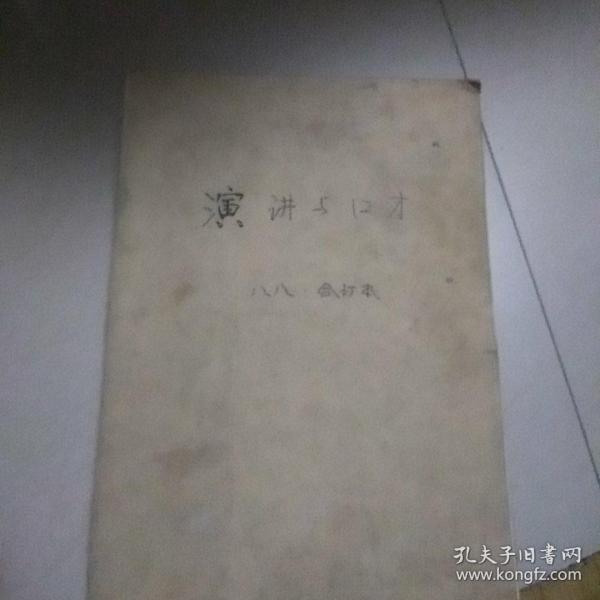 演讲与口才
八八·合订本
孔夫子旧书网
www.kongfz.com